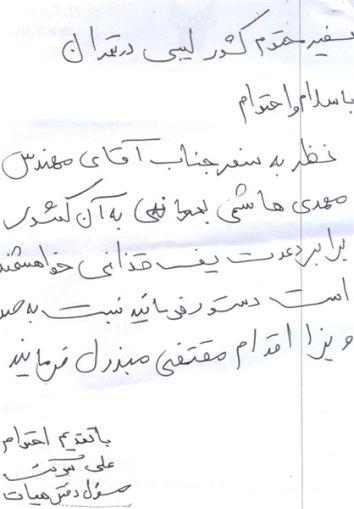 سفیر محترم کشور لیبی در تهران
با سلام و احترام
نظر به سفر جناب آقای مهندس
مهدی هاشمی به آن کشور
برابر دعوت یوسف قذافی خواهشمند
است دستور فرمائید نسبت به صدور
ویزا اقدام مقتضی مبذول فرمایند
با تقدیم احترام
علی
مسئول دفتر هیات